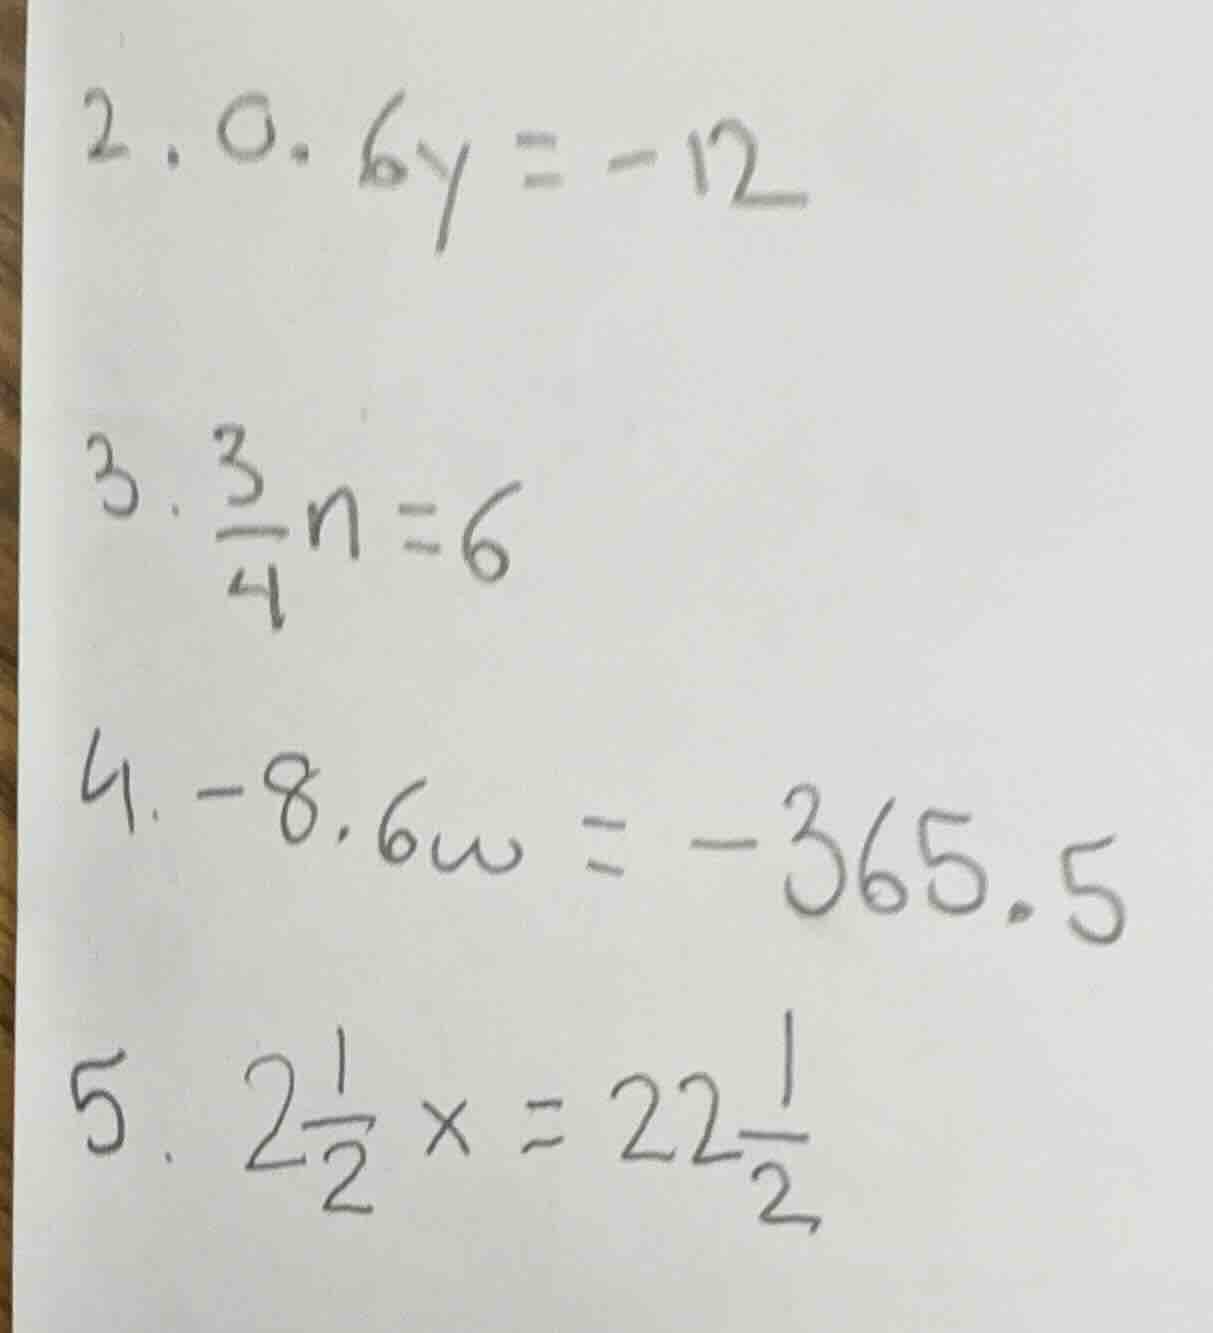 2. 0.6y = -12
3. 3/4 n = 6
4. -8.6w = -365.5
5. 2 1/2 x = 22 1/2